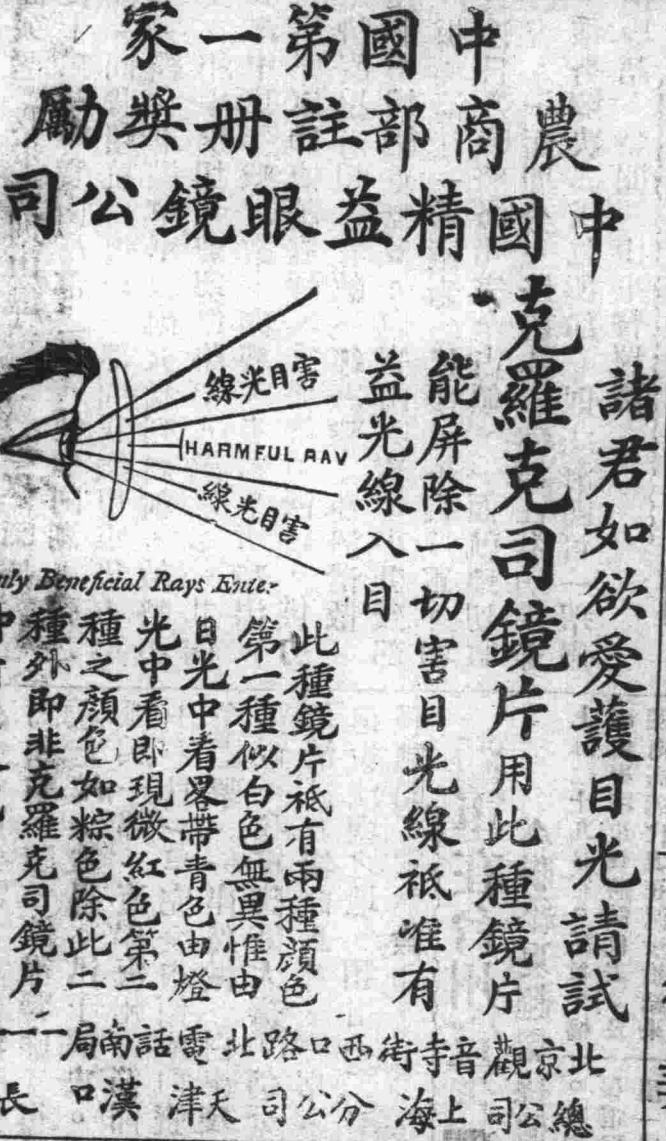 中國第一家
農商部註册獎勵
中國精益眼鏡公司
諸君如欲愛護目光請試
克羅克司鏡片用此種鏡片
能屏除一切害目光線祗唯有
益光線入目
害目光線
HARMFUL RAY
害目光線
Beneficial Rays Enter
此種鏡片祗有兩種顏色
第一種似白色無異惟由
日光中看畧帶青色由燈
光中看即現微紅色第二
種之顏色如粽色除此二
種外即非克羅克司鏡片
北京觀音寺街西口路北電話南局
總公司上海分公司天津漢口長